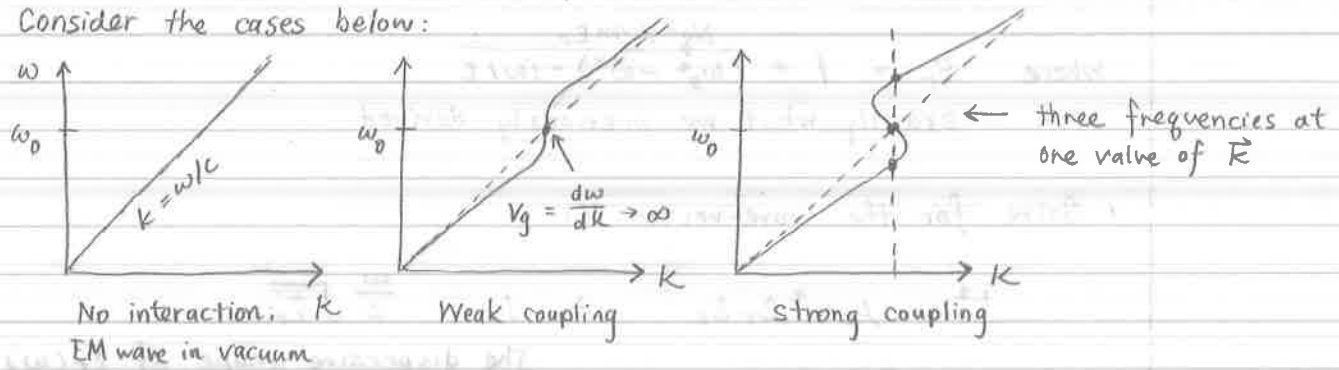 Consider the cases below:
ω
ω₀
k = ω/c
k
No interaction.
EM wave in vacuum
ω₀
Vg = dω/dk → ∞
k
Weak coupling
ω₀
← three frequencies at
one value of k⃗
k
strong coupling